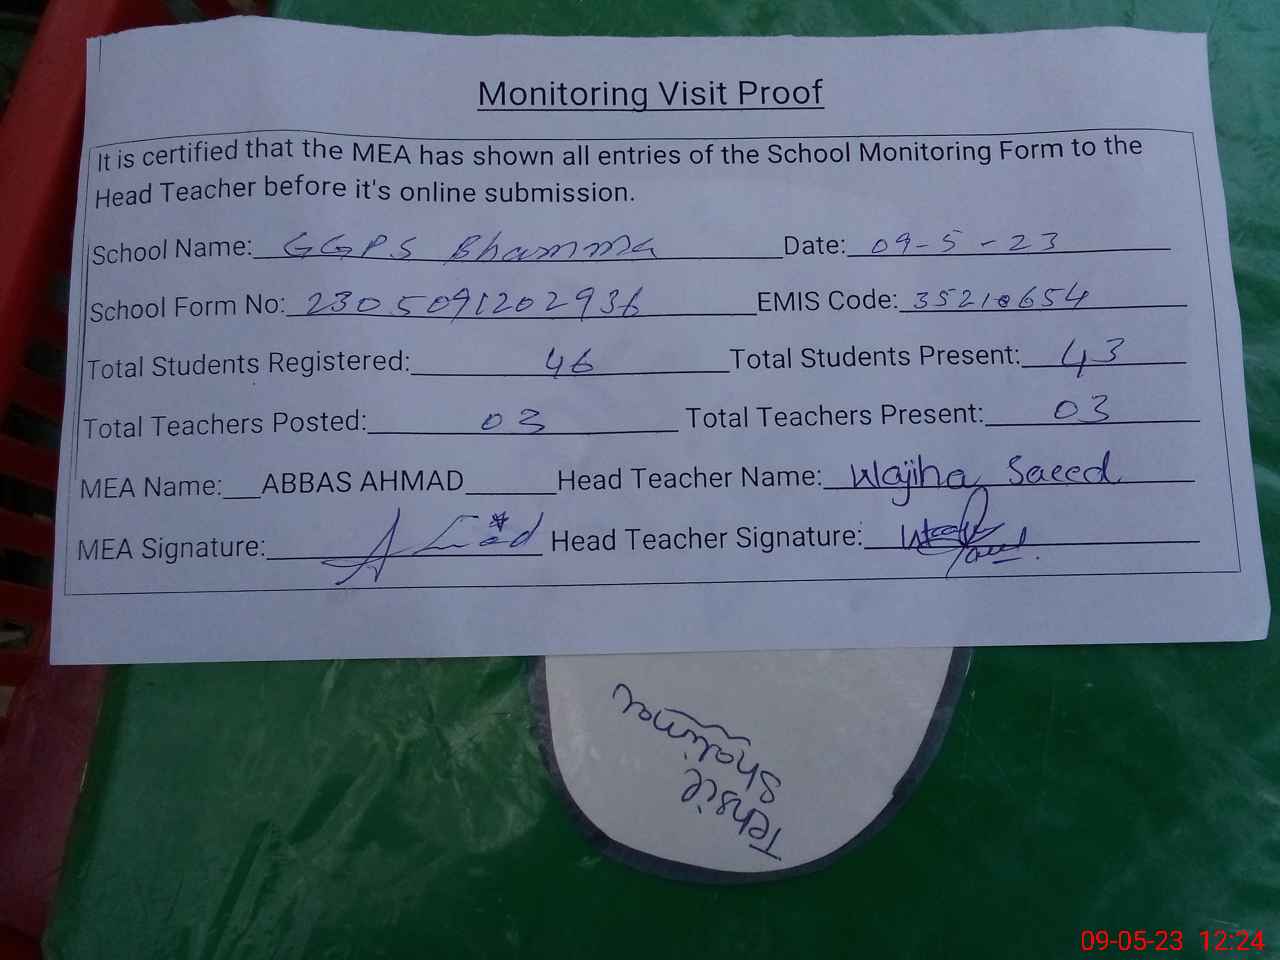 Monitoring Visit Proof
It is certified that the MEA has shown all entries of the School Monitoring Form to the
Head Teacher before it's online submission.
School Name: GGPS Bhamma Date: 09-5-23
School Form No: 2305091202936 EMIS Code: 35210654
Total Students Registered: 46 Total Students Present: 43
Total Teachers Posted: 03 Total Teachers Present: 03
MEA Name: ABBAS AHMAD Head Teacher Name: Wajiha Saeed
MEA Signature: Head Teacher Signature:
Tehsil
Shalimar
09-05-23 12:24